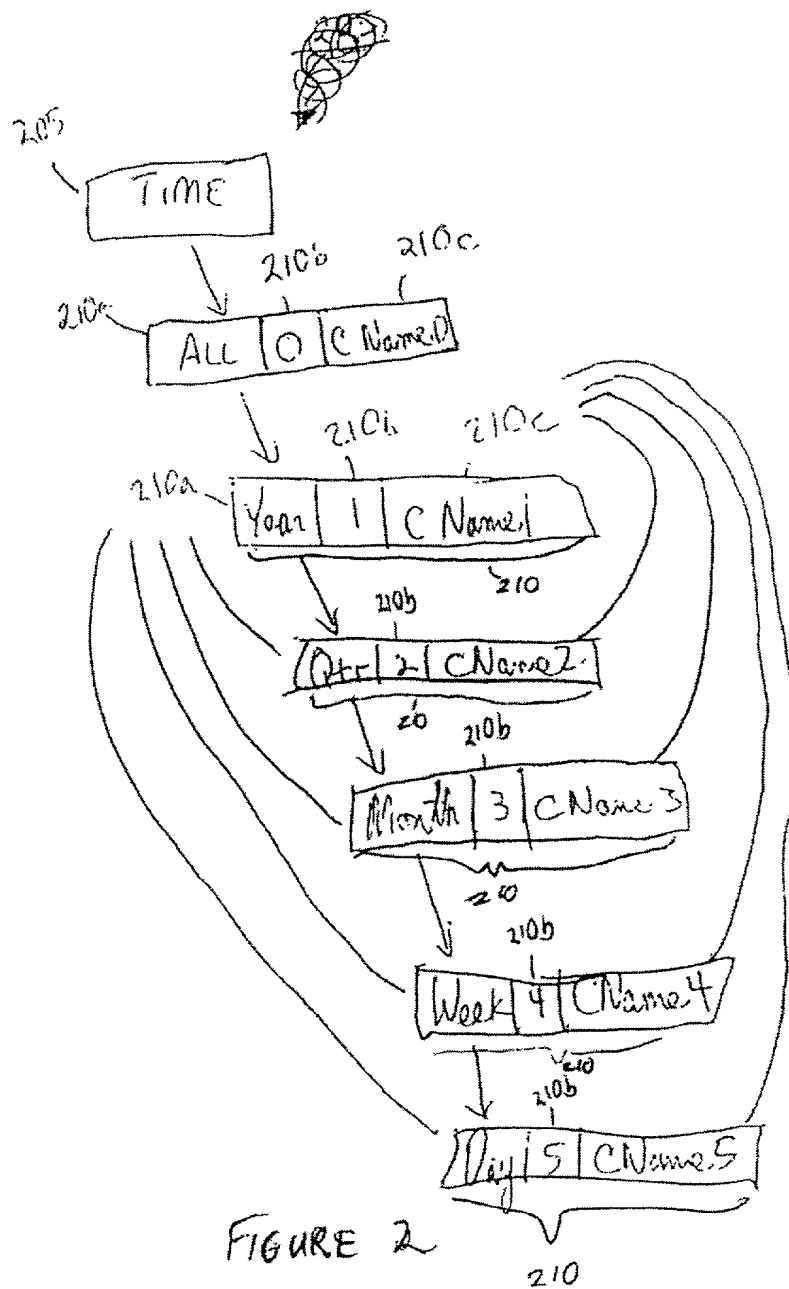 205
TIME
210b 210c
210a
ALL 0 C Name.0
210b 210c
210a
Year 1 C Name.1
210
210b
Qtr 2 CName2
20
210b
Month 3 CName 3
210
210b
Week 4 CName.4
210
210b
Day 5 CName.5
FIGURE 2
210